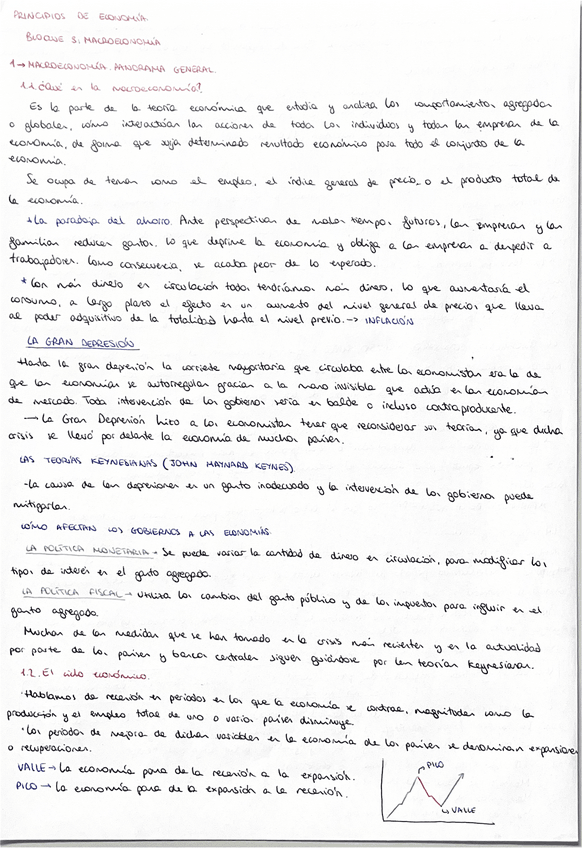 PRINCIPIOS DE ECONOMÍA.
BLOQUE 5: MACROECONOMÍA
1→ MACROECONOMÍA. PANORAMA GENERAL.
1.1. ¿Qué es la macroeconomía?
Es la parte de la teoría económica que estudia y analiza los comportamientos agregados
o globales, cómo interactúan las acciones de todos los individuos y todas las empresas de la
economía, de forma que surja determinado resultado económico para todo el conjunto de la
economía.
Se ocupa de temas como el empleo, el índice general de precios o el producto total de
la economía.
*La paradoja del ahorro. Ante perspectivas de malos tiempos futuros, las empresas y las
familias reducen gastos. lo que deprime la economía y obliga a las empresas a despedir a
trabajadores. Como consecuencia, se acaba peor de lo esperado.
*Con más dinero en circulación todos tendríamos más dinero, lo que aumentaría el
consumo, a largo plazo el efecto es un aumento del nivel general de precios que lleva
al poder adquisitivo de la totalidad hasta el nivel previo. -> INFLACIÓN
LA GRAN DEPRESIÓN
Hasta la gran depresión la corriente mayoritaria que circulaba entre los economistas era la de
que las economías se autorregulan gracias a la mano invisible que actúa en las economías
de mercado. Toda intervención de los gobiernos sería en balde o incluso contraproducente.
→ La Gran Depresión hizo a los economistas tener que reconsiderar sus teorías, ya que dicha
crisis se llevó por delante la economía de muchos países.
LAS TEORÍAS KEYNESIANAS (JOHN MAYNARD KEYNES).
-La causa de las depresiones es un gasto inadecuado y la intervención de los gobiernos puede
mitigarlas.
CÓMO AFECTAN LOS GOBIERNOS A LAS ECONOMÍAS
LA POLÍTICA MONETARIA → Se puede variar la cantidad de dinero en circulación, para modificar los
tipos de interés en el gasto agregado.
LA POLÍTICA FISCAL → Utiliza los cambios del gasto público y de los impuestos para influir en el
gasto agregado.
Muchas de las medidas que se han tomado en la crisis más recientes y en la actualidad
por parte de los países y bancos centrales siguen guiándose por las teorías Keynesianas.
1.2. El ciclo económico.
·Hablamos de recesión en periodos en los que la economía se contrae, magnitudes como la
producción y el empleo total de uno o varios países disminuye.
·Los periodos de mejora de dichas variables en la economía de los países se denominan expansiones
o recuperaciones.
VALLE → La economía pasa de la recesión a la expansión.
PICO → La economía pasa de la expansión a la recesión.
PICO
VALLE